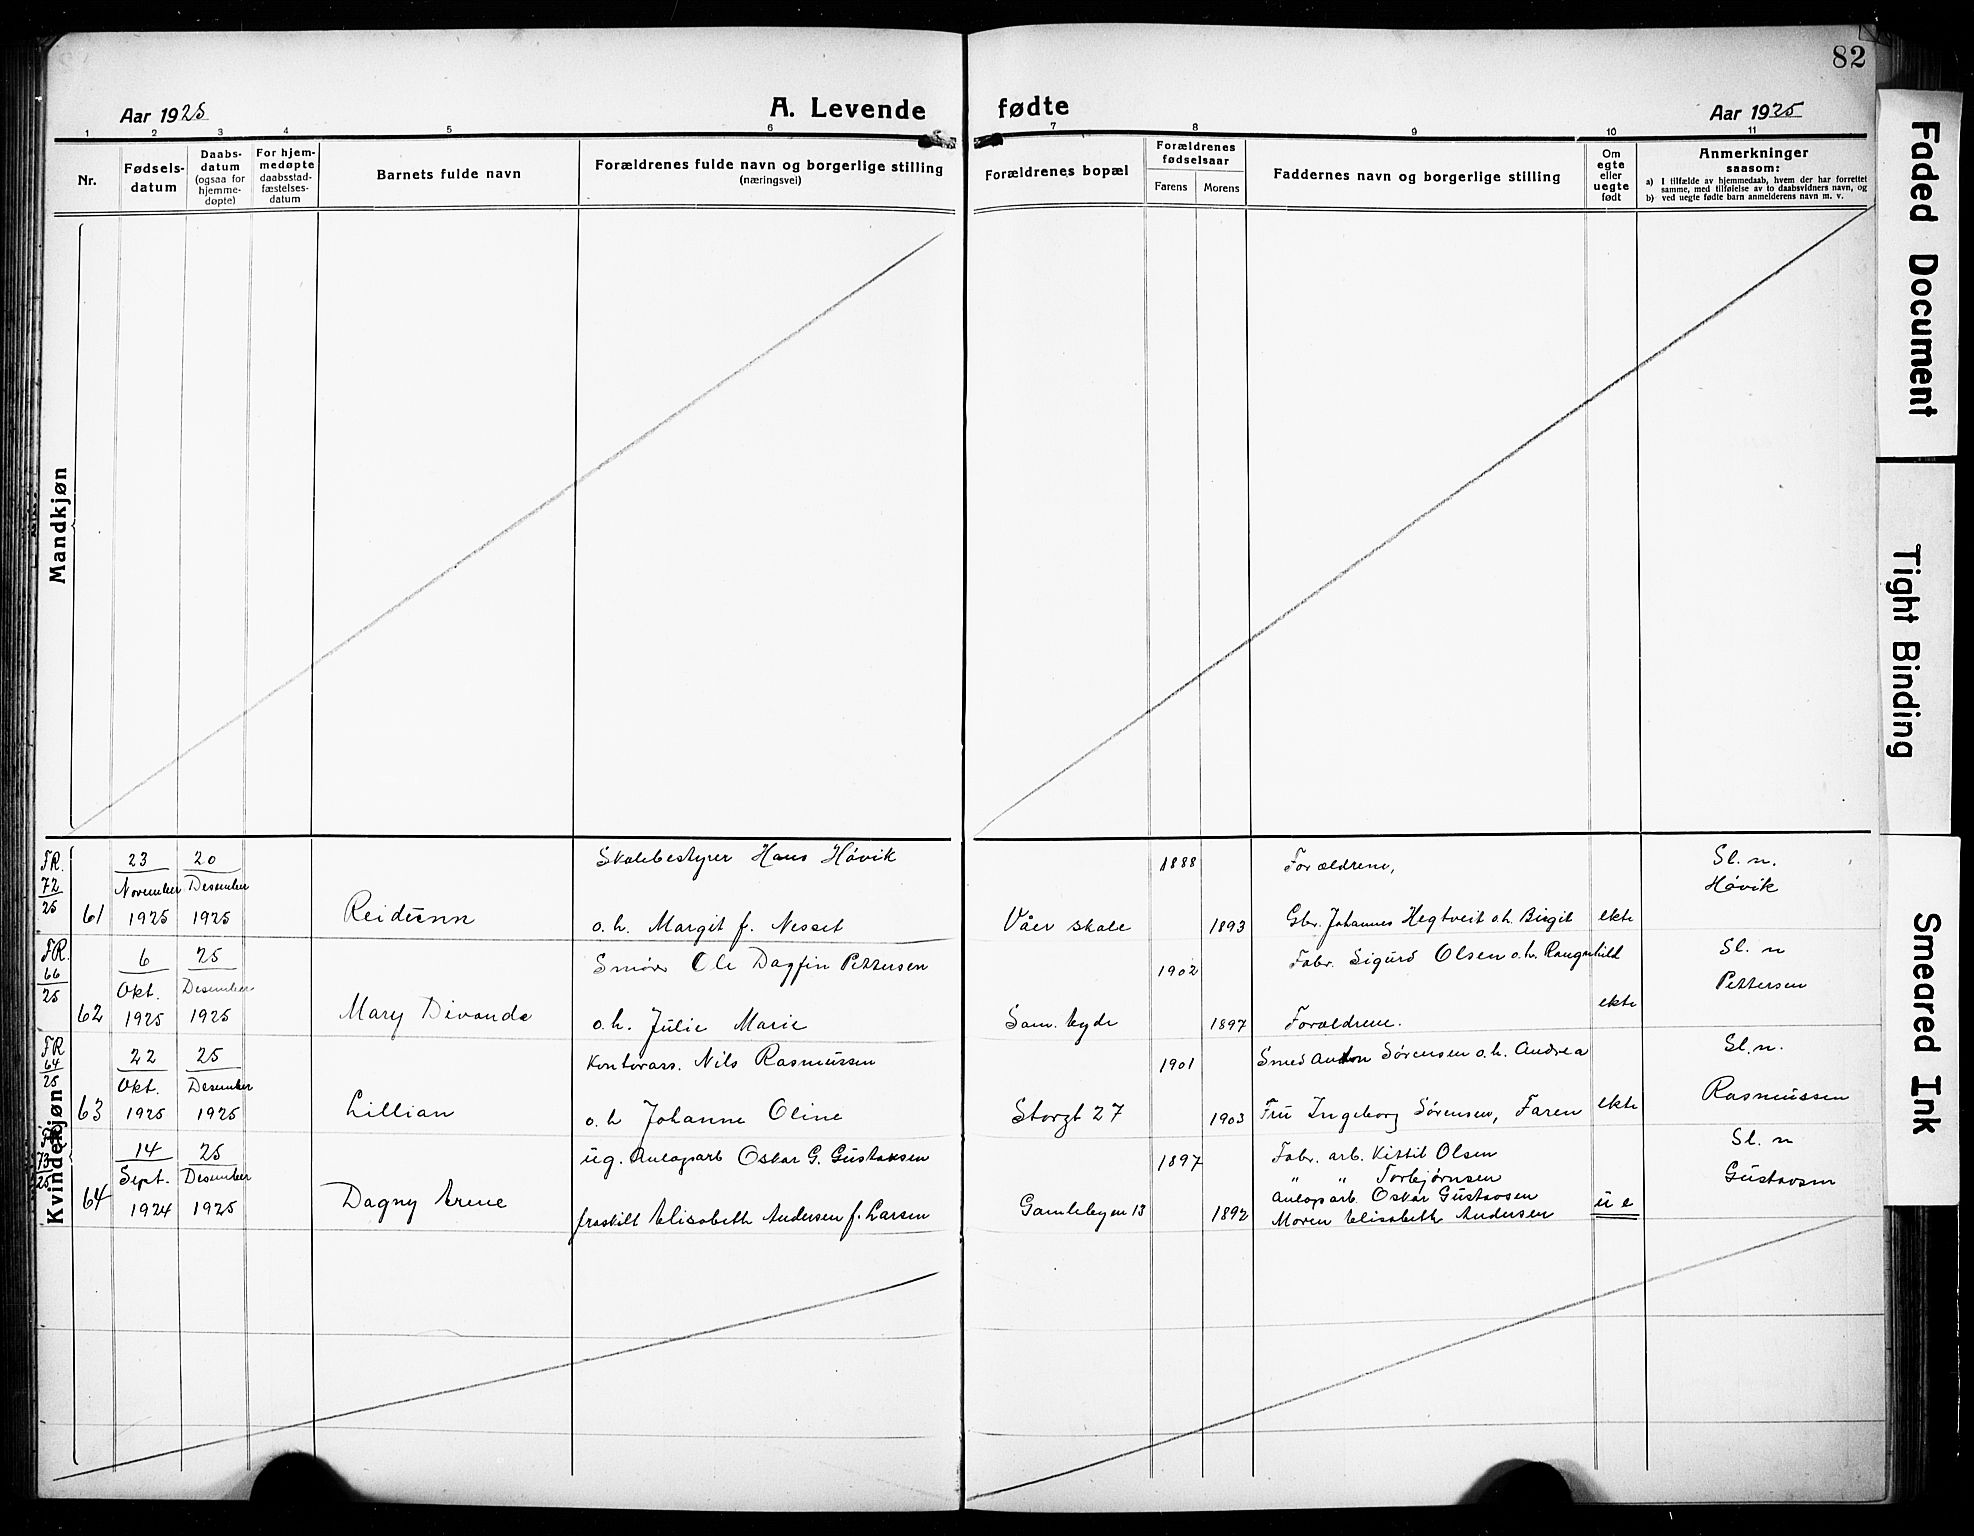 82
Aar 1925
A. Levende fødte
Aar 1925
1 2 3 4 5 6 7 8 9 10 11
Nr.
Fødsels-
datum
Daabs-
datum
(ogsaa for
hjemme-
døpte)
For hjem-
medøpte
daabsstad-
fæstelses-
datum
Barnets fulde navn
Forældrenes fulde navn og borgerlige stilling
(næringsvei)
Forældrenes bopæl
Forældrenes
fødselsaar
Farens
Morens
Faddernes navn og borgerlige stilling
Om
egte
eller
uegte
født
Anmerkninger
saasom:
a) I tilfælde av hjemmedaab, hvem der har forrettet
samme, med tilføielse av to daabsvidners navn, og
b) ved uegte fødte barn anmelderens navn m. v.
Mandkjøn
Kvindekjøn
FR.
72
25
61
23
November
1925
20
Desember
1925
Reidunn
Skolebestyrer Hans Høvik
o. h. Margit f. Nesset
Våer skole
1888
1893
Forældrene,
Gbr. Johannes Hegtveit o.h. Birgit
ekte
Sl. n.
Høvik
FR.
66
25
62
6
Okt.
1925
25
Desember
1925
Mary Divonda
Ole Dagfin Pettersen
o. h. Julie Marie
Sam. bygde
1902
1897
Fabr. Sigurd Olsen o.h. Rangnhild
Forældrene.
ekte
Sl. n
Pettersen
FR
64
25
63
22
Okt.
1925
25
Desember
1925
Lillian
Kontorass. Nils Rasmussen
o. h Johanne Oline
Storgt 27
1901
1903
Smed Anton Sørensen o.h. Andrea
Fru Ingeborg Sørensen, Faren
ekte
Sl. n.
Rasmussen
FR
73
25
64
14
Sept.
1924
25
Desember
1925
Dagny Irene
ug. Anlagsarb Oskar G. Gustavsen
fraskilt Elisabeth Andersen f. Larsen
Gamlebyen 13
1897
1892
Fabr. arb. Kittil Olsen
" " Torbjørnsen
Anlagsarb. Oskar Gustavsen
Moren Elisabeth Andersen
u e
Sl. n
Gustavsen
Faded Document
Tight Binding
Smeared Ink